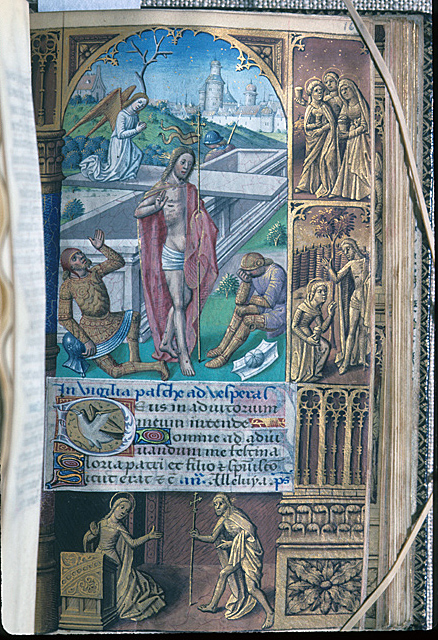 In vigilia pasche ad vesperas
Deus in adiutorium
meum intende
Domine ad adiu
uandum me festina
Gloria patri et filio et spui sco
Sicut erat &c an. Alleluya. ps